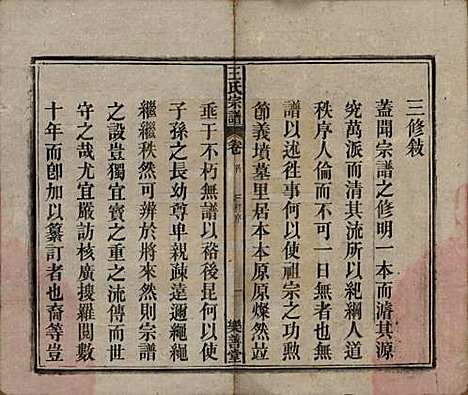 三修敍
蓋聞宗譜之修明一本而濬其源
究萬派而清其流所以紀綱人道
秩序人倫而不可一日無者也無譜
以述徃事何以使祖宗之功勲
節義墳墓里居本本原原燦然竝
王氏宗譜
卷
樂善堂
垂于不朽無譜以裕後昆何以使
子孫之長幼尊卑親疎遠邇繩繩
繼繼秩然可辨於將來然則宗譜
之設豈獨宜寶之重之流傳而世
守之哉尤宜嚴訪核廣搜羅閲數
十年而卽加以纂訂者也裔等豈